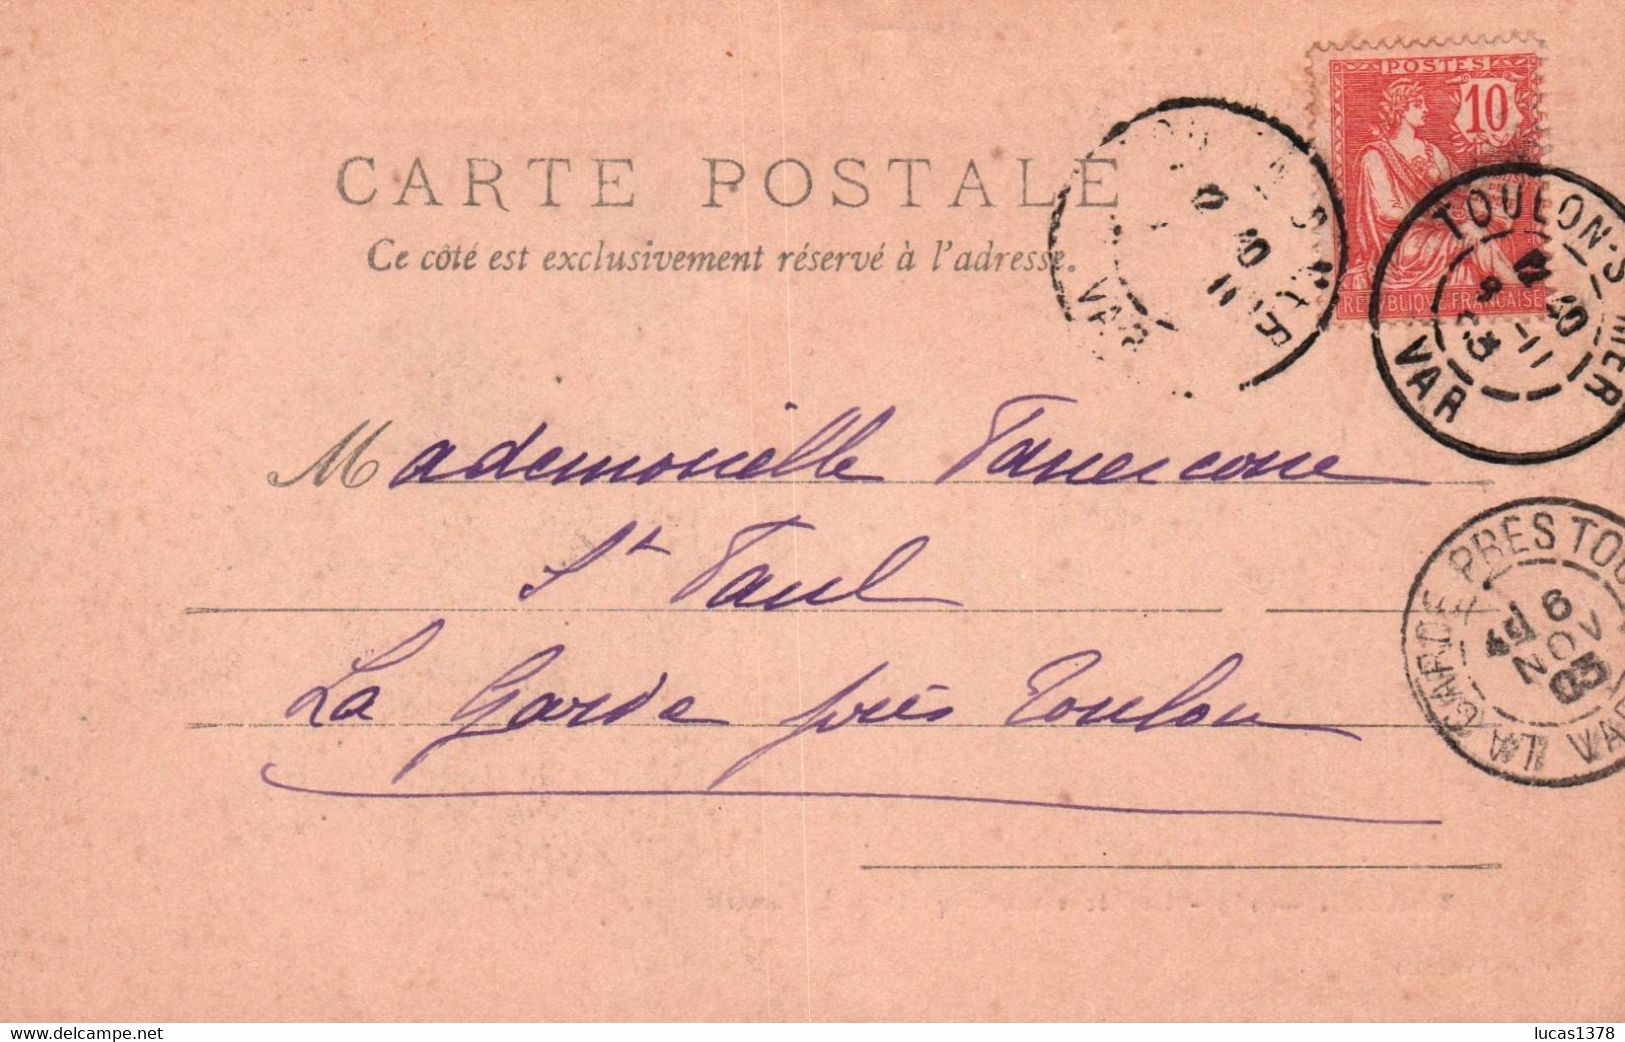 POSTES
10
REPUBLIQUE FRANCAISE
CARTE POSTALE
Ce côté est exclusivement réservé à l'adresse.
VAR
TOULON-S MER
11
VAR
Mademoiselle
St Paul
La Garde près Toulon
LA GARDE PRES TOU
6
NOV
03
VAR
delcampe.net
lucas1378